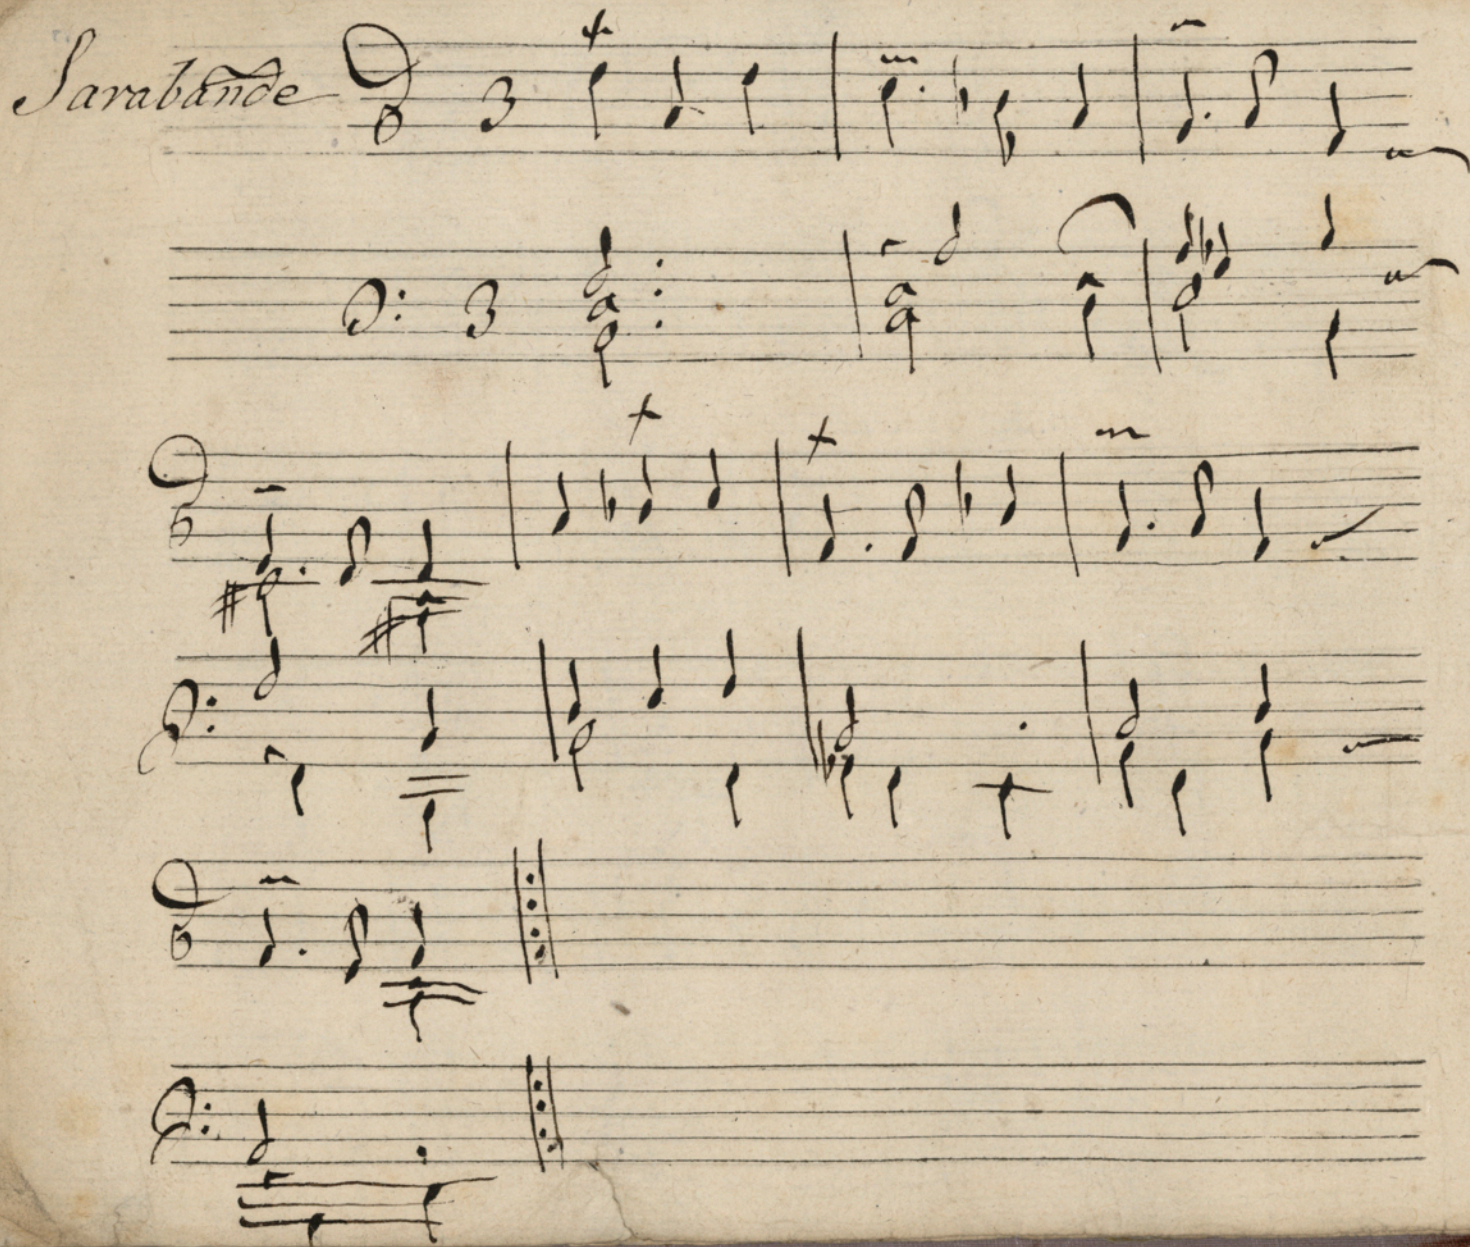 Sarabande
3
3